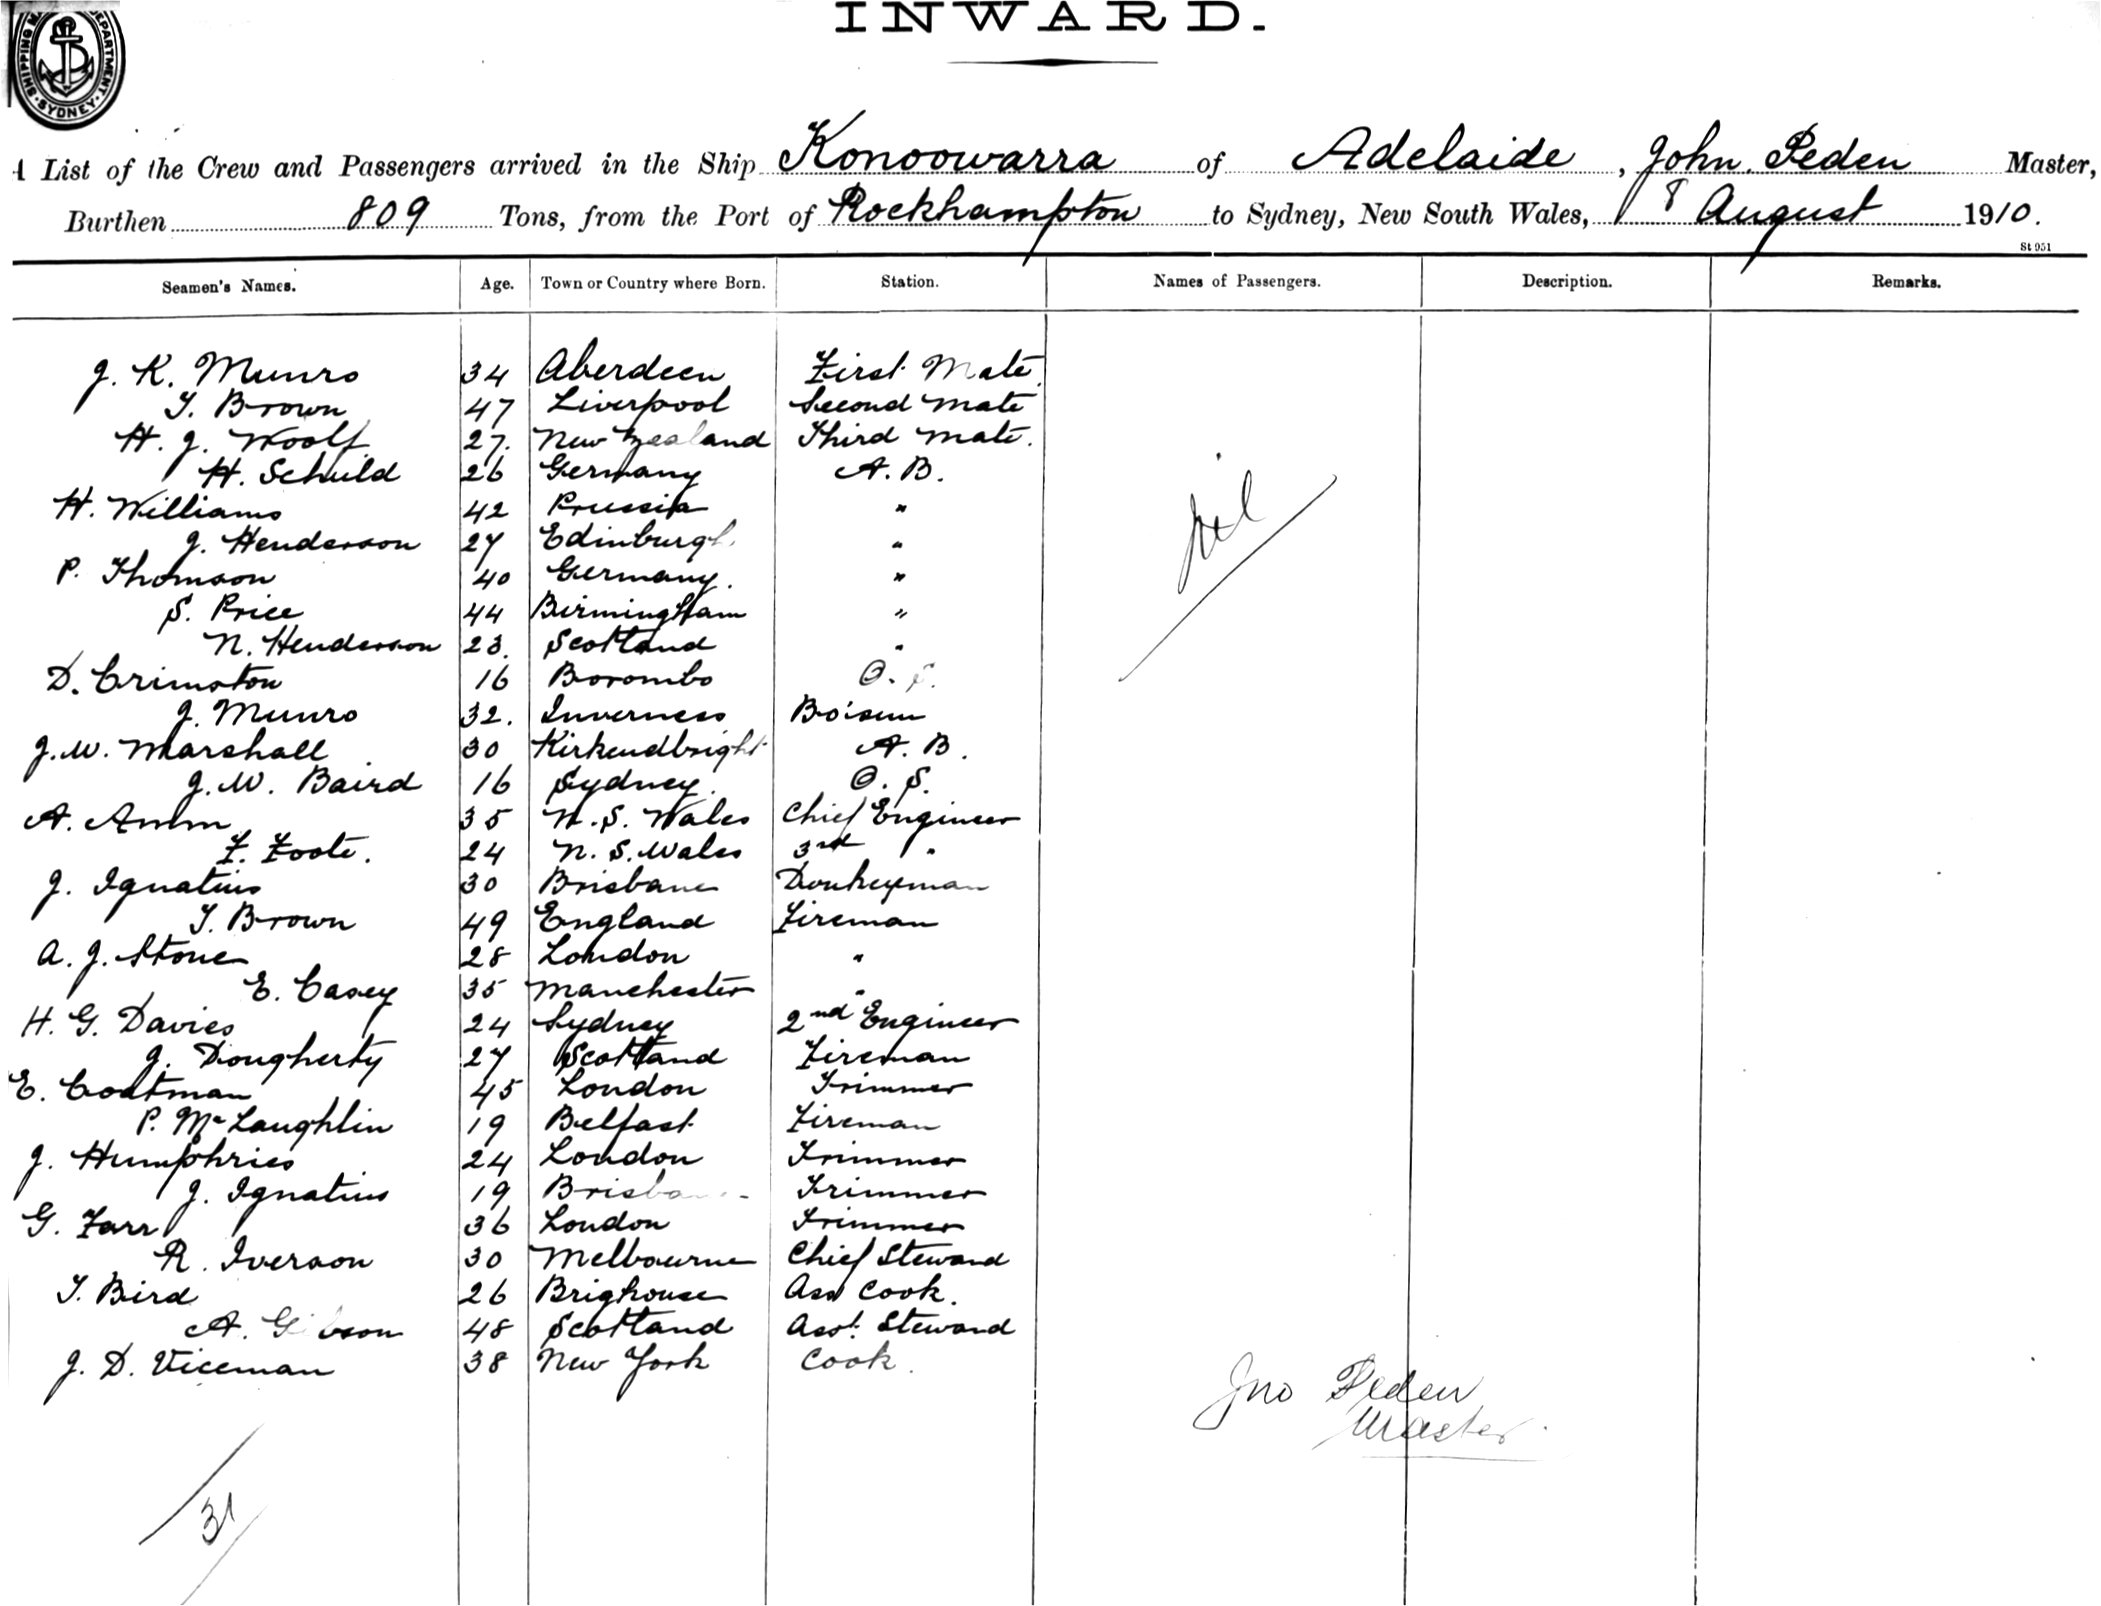 INWARD.
SHIPPING MA DEPARTMENT SYDNEY
A List of the Crew and Passengers arrived in the Ship Konoowarra of Adelaide, John Peden Master,
Burthen 809 Tons, from the Port of Rockhampton to Sydney, New South Wales, 8 August 1910.
St 951
Seamen's Names. Age. Town or Country where Born. Station. Names of Passengers. Description. Remarks.
J. K. Munro 34 Aberdeen First Mate
T. Brown 47 Liverpool Second Mate
H. J. Woolf 27. New Zealand Third Mate.
H. Schuld 26 Germany A. B.
H. Williams 42 Prussia "
J. Henderson 27 Edinburgh "
P. Thomson 40 Germany. "
S. Price 44 Birmingham "
N. Henderson 23. Scotland "
D. Crimston 16 Borombo O. S.
J. Munro 32. Inverness Bo'sun
J. W. Marshall 30 Kirkcudbright A. B.
J. W. Baird 16 Sydney. O. S.
A. Amm 35 N. S. Wales Chief Engineer
F. Foote. 24 N. S. Wales 3rd "
J. Ignatius 30 Brisbane Donkeyman
T. Brown 49 England Fireman
A. J. Stone 28 London "
E. Casey 35 Manchester "
H. G. Davies 24 Sydney 2nd Engineer
J. Dougherty 27 Scotland Fireman
E. Coatman 45 London Trimmer
P. McLaughlin 19 Belfast Fireman
J. Humphries 24 London Trimmer
J. Ignatius 19 Brisbane Trimmer
G. Farr 36 London Trimmer
R. Iverson 30 Melbourne Chief Steward
T. Bird 26 Brighouse Ass Cook.
A. Gibson 48 Scotland Asst. Steward
J. D. Viceman 38 New York Cook.
Nil
Jno Peden
Master.
31